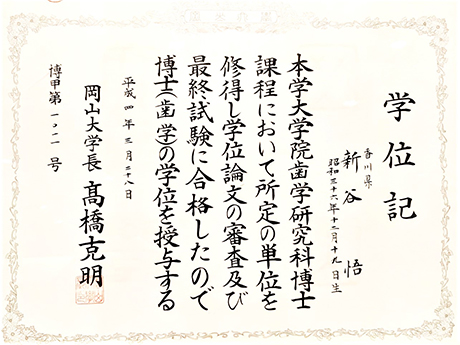 学位記
香川県
新谷 悟
昭和三十六年十二月十九日生
本学大学院歯学研究科博士
課程において所定の単位を
修得し学位論文の審査及び
最終試験に合格したので
博士(歯学)の学位を授与する
平成四年三月二十八日
岡山大学長 髙橋克明
博甲第一〇二一号